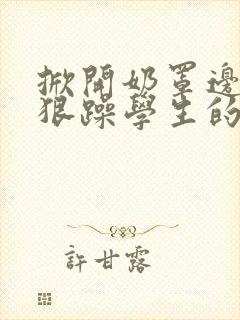 掀開奶罩邊
狠躁學生的
許甘露